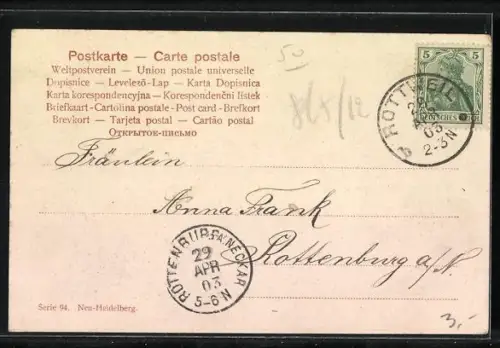 Postkarte — Carte postale
Weltpostverein — Union postale universelle
Dopisnice — Levelező-Lap — Karta Dopisnica
Karta korespondencyjna — Korespondenční lístek
Briefkaart - Cartolina postale - Post card - Brefkort
Brevkort — Tarjeta postal — Cartão postal
ОТКРЫТОЕ-ПИСЬМО
50
5 5
ROTTWEIL
03
2-3N
Fräulein
Anna Frank
Rottenburg a/N.
ROTTENBURG A NECKAR
29
APR
03
5-6 N
Serie 94. Neu-Heidelberg.